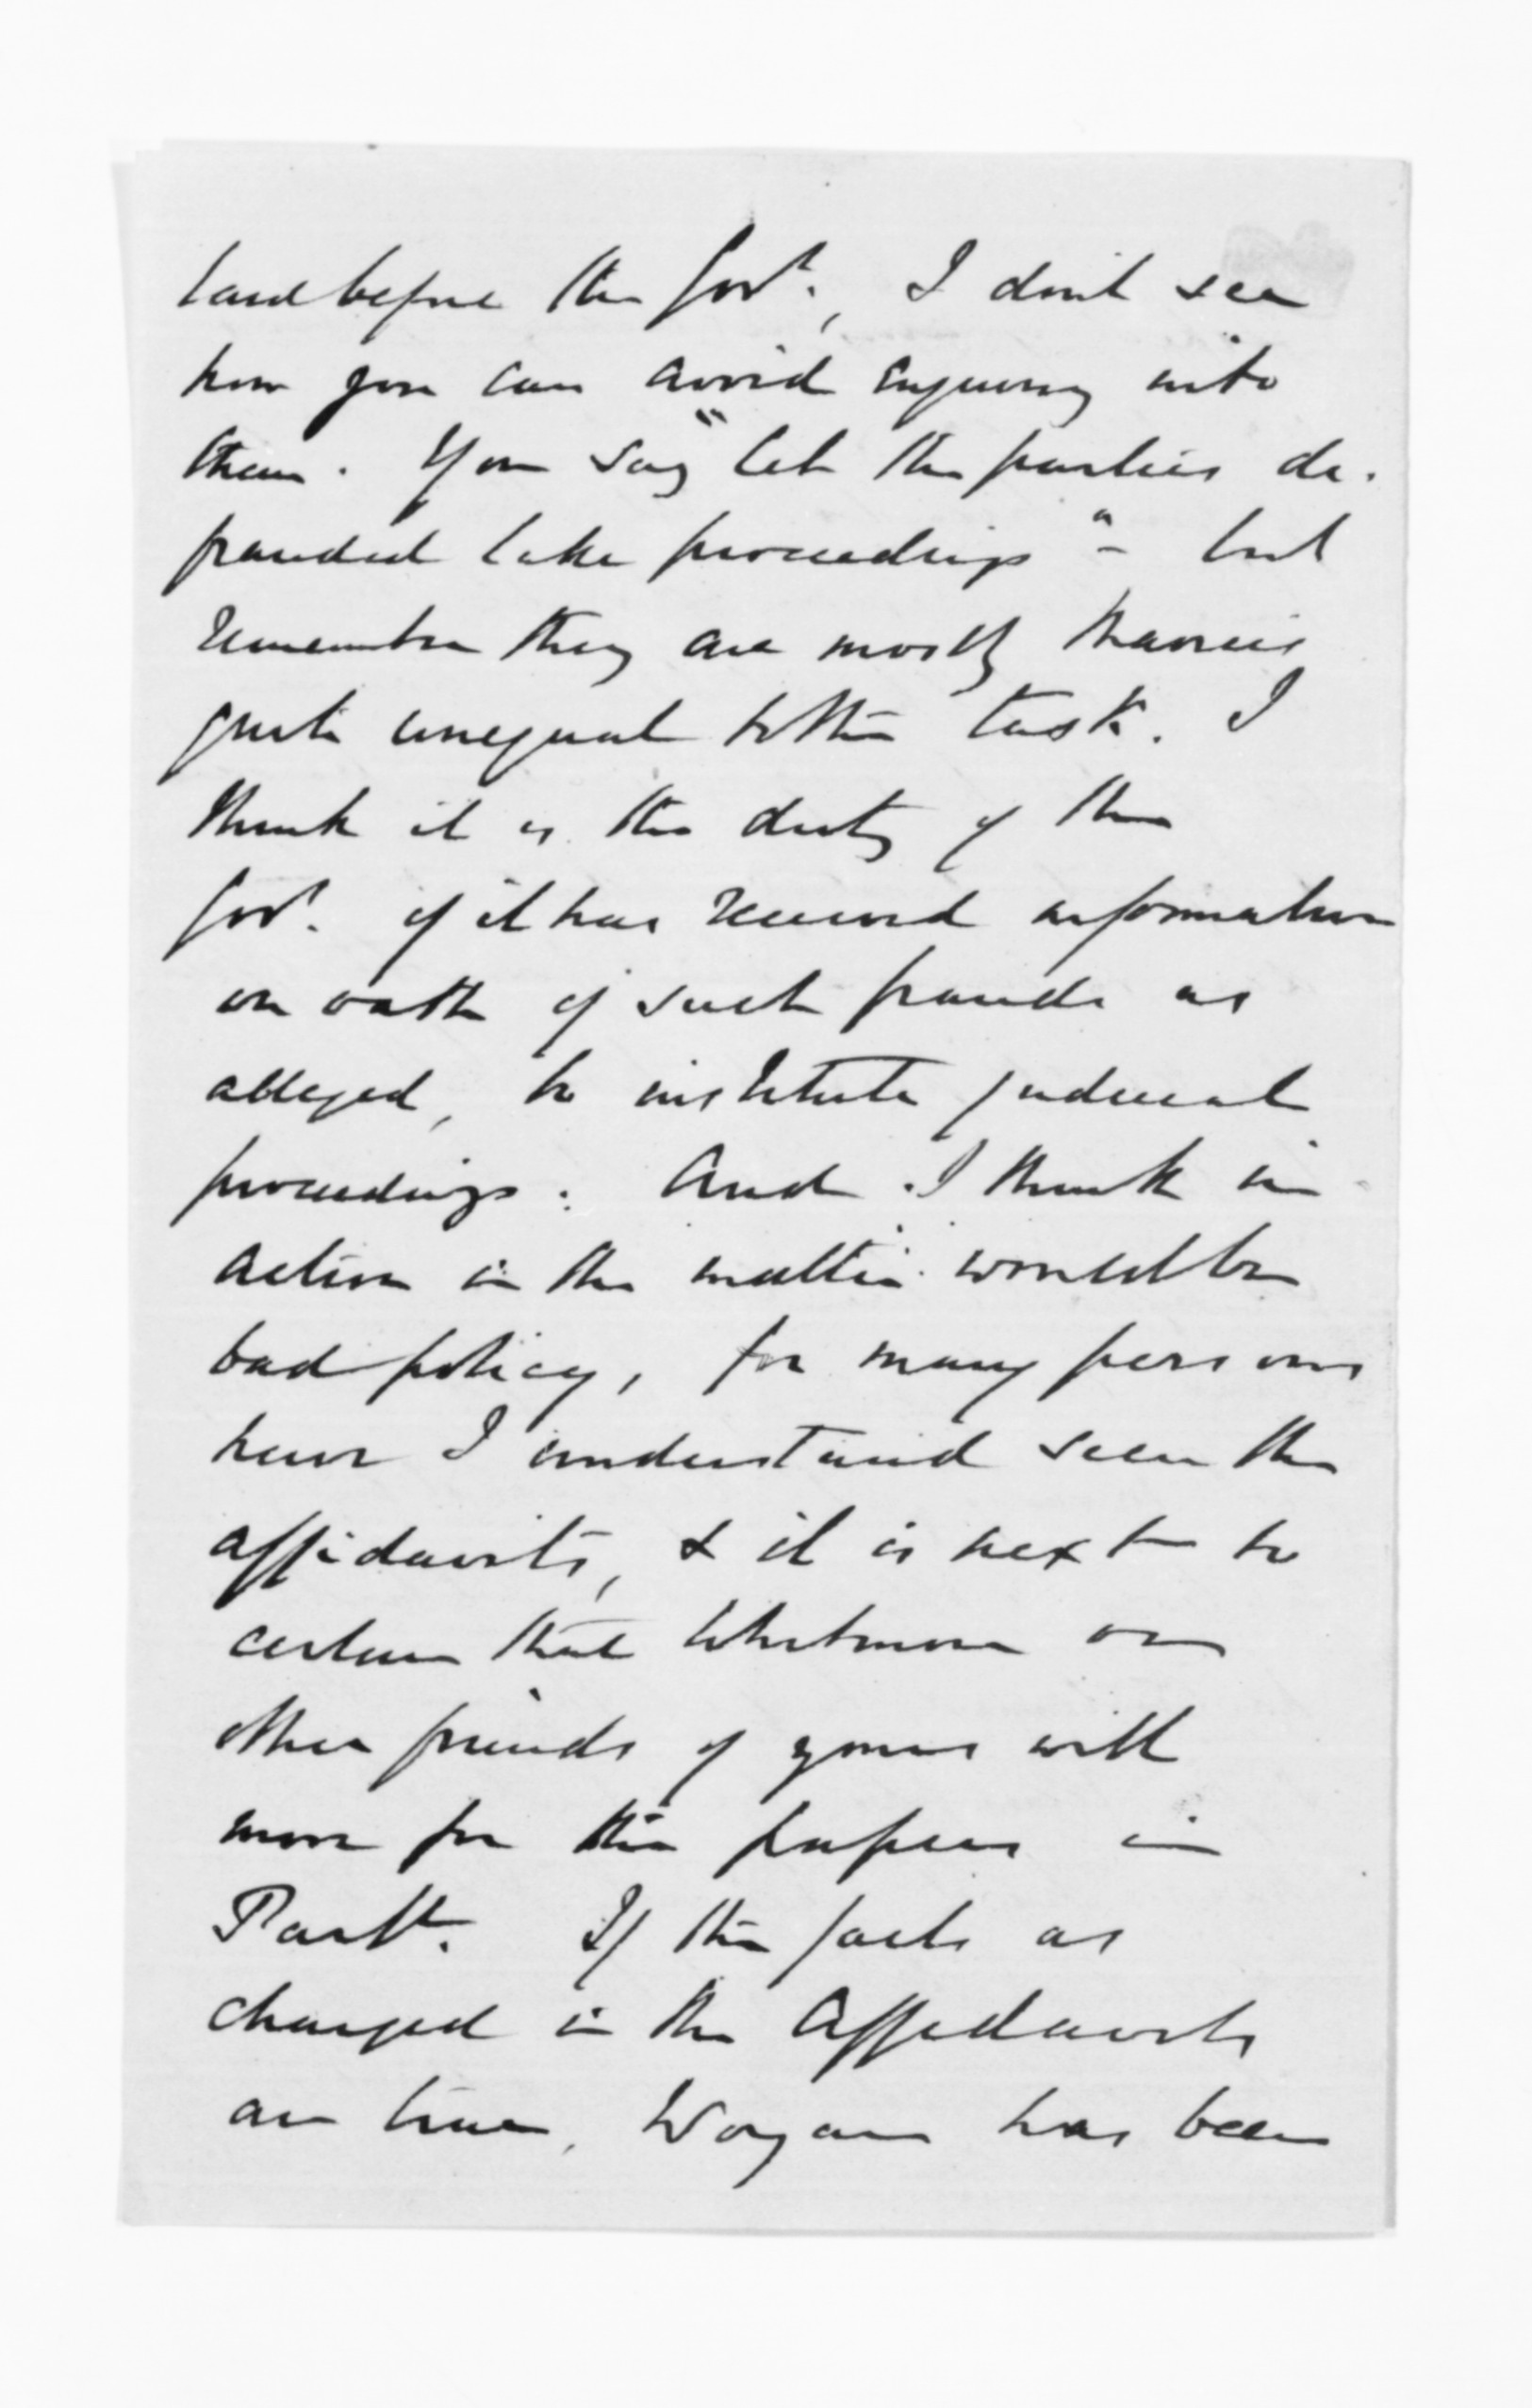 laid before the Govt., I don't see
how you can avoid enquiry into
them. You say "let the parties de-
frauded take proceedings" - but
remember they are mostly Maories
quite unequal to the task. I
think it is the duty of the
Govt. if it has received information
on oath of such frauds as
alleged, to institute judicial
proceedings. And I think in
action in the matter would be
bad policy, for many persons
have I understand seen the
affidavits, & it is next to
certain that Whitmore or
other friends of yours will
move for the papers in
Parlt. If the facts as
charged in the Affidavits
are true, Wogan has been